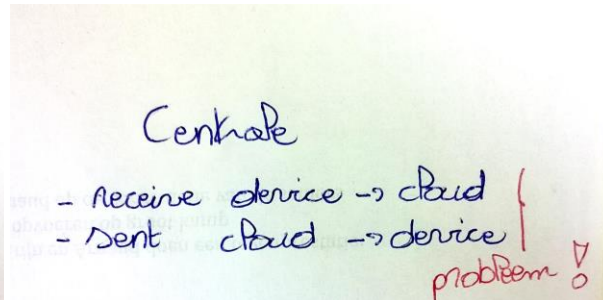 Centrale
- receive device -> cloud
- sent cloud -> device
probleem !